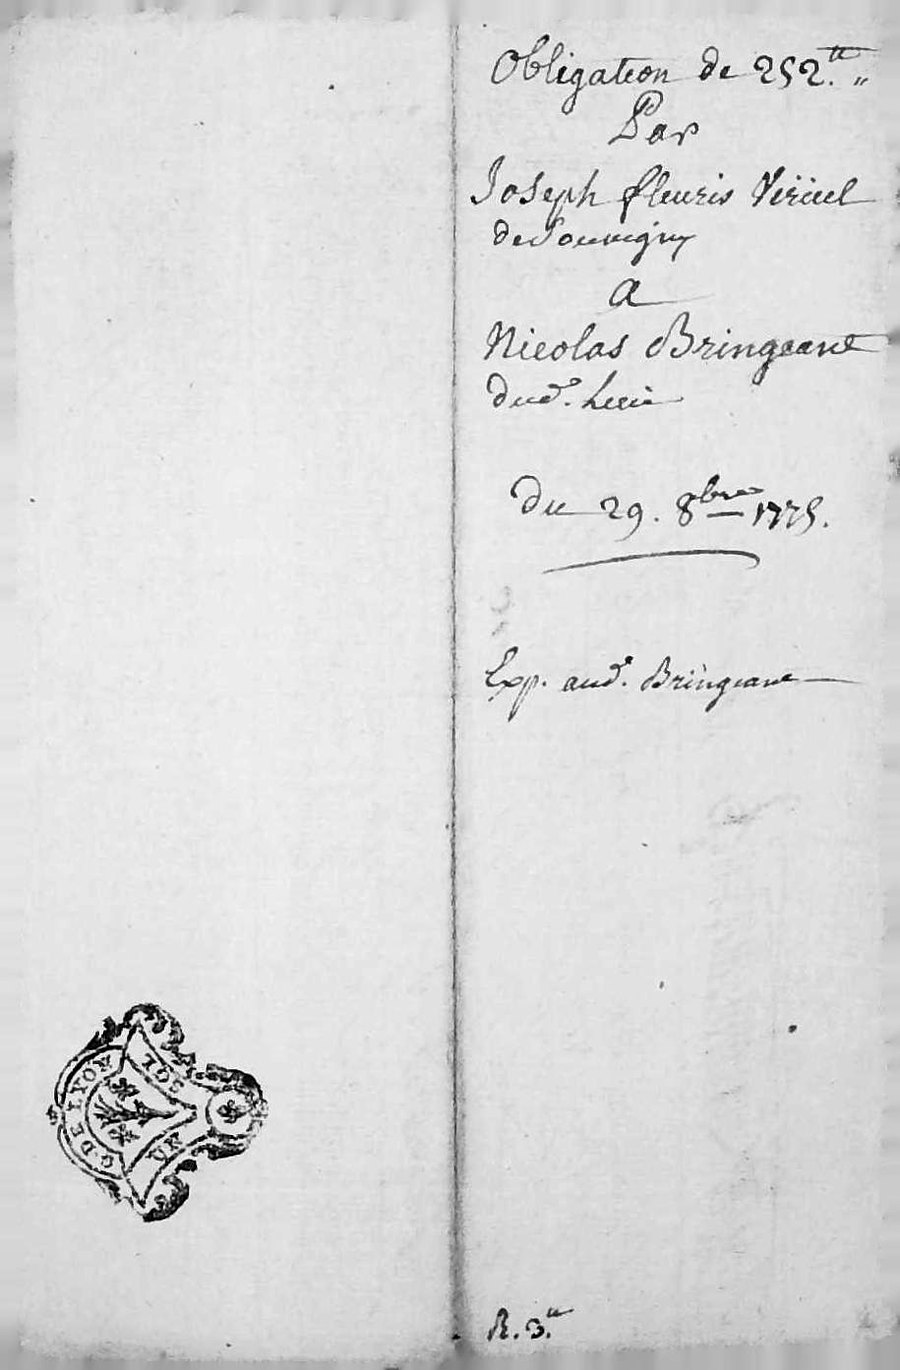 Obligation de 252.ᵗᵗ "
Par
Joseph fleuris
de Souvigny
a
Nicolas Bringeand
dud.ᵗ Lieu
Du 29. 8bre 1775.
Exp. aud.ᵗ Bringeand
R. 3.ᵗᵗ
G DE LYON
UN
SOL